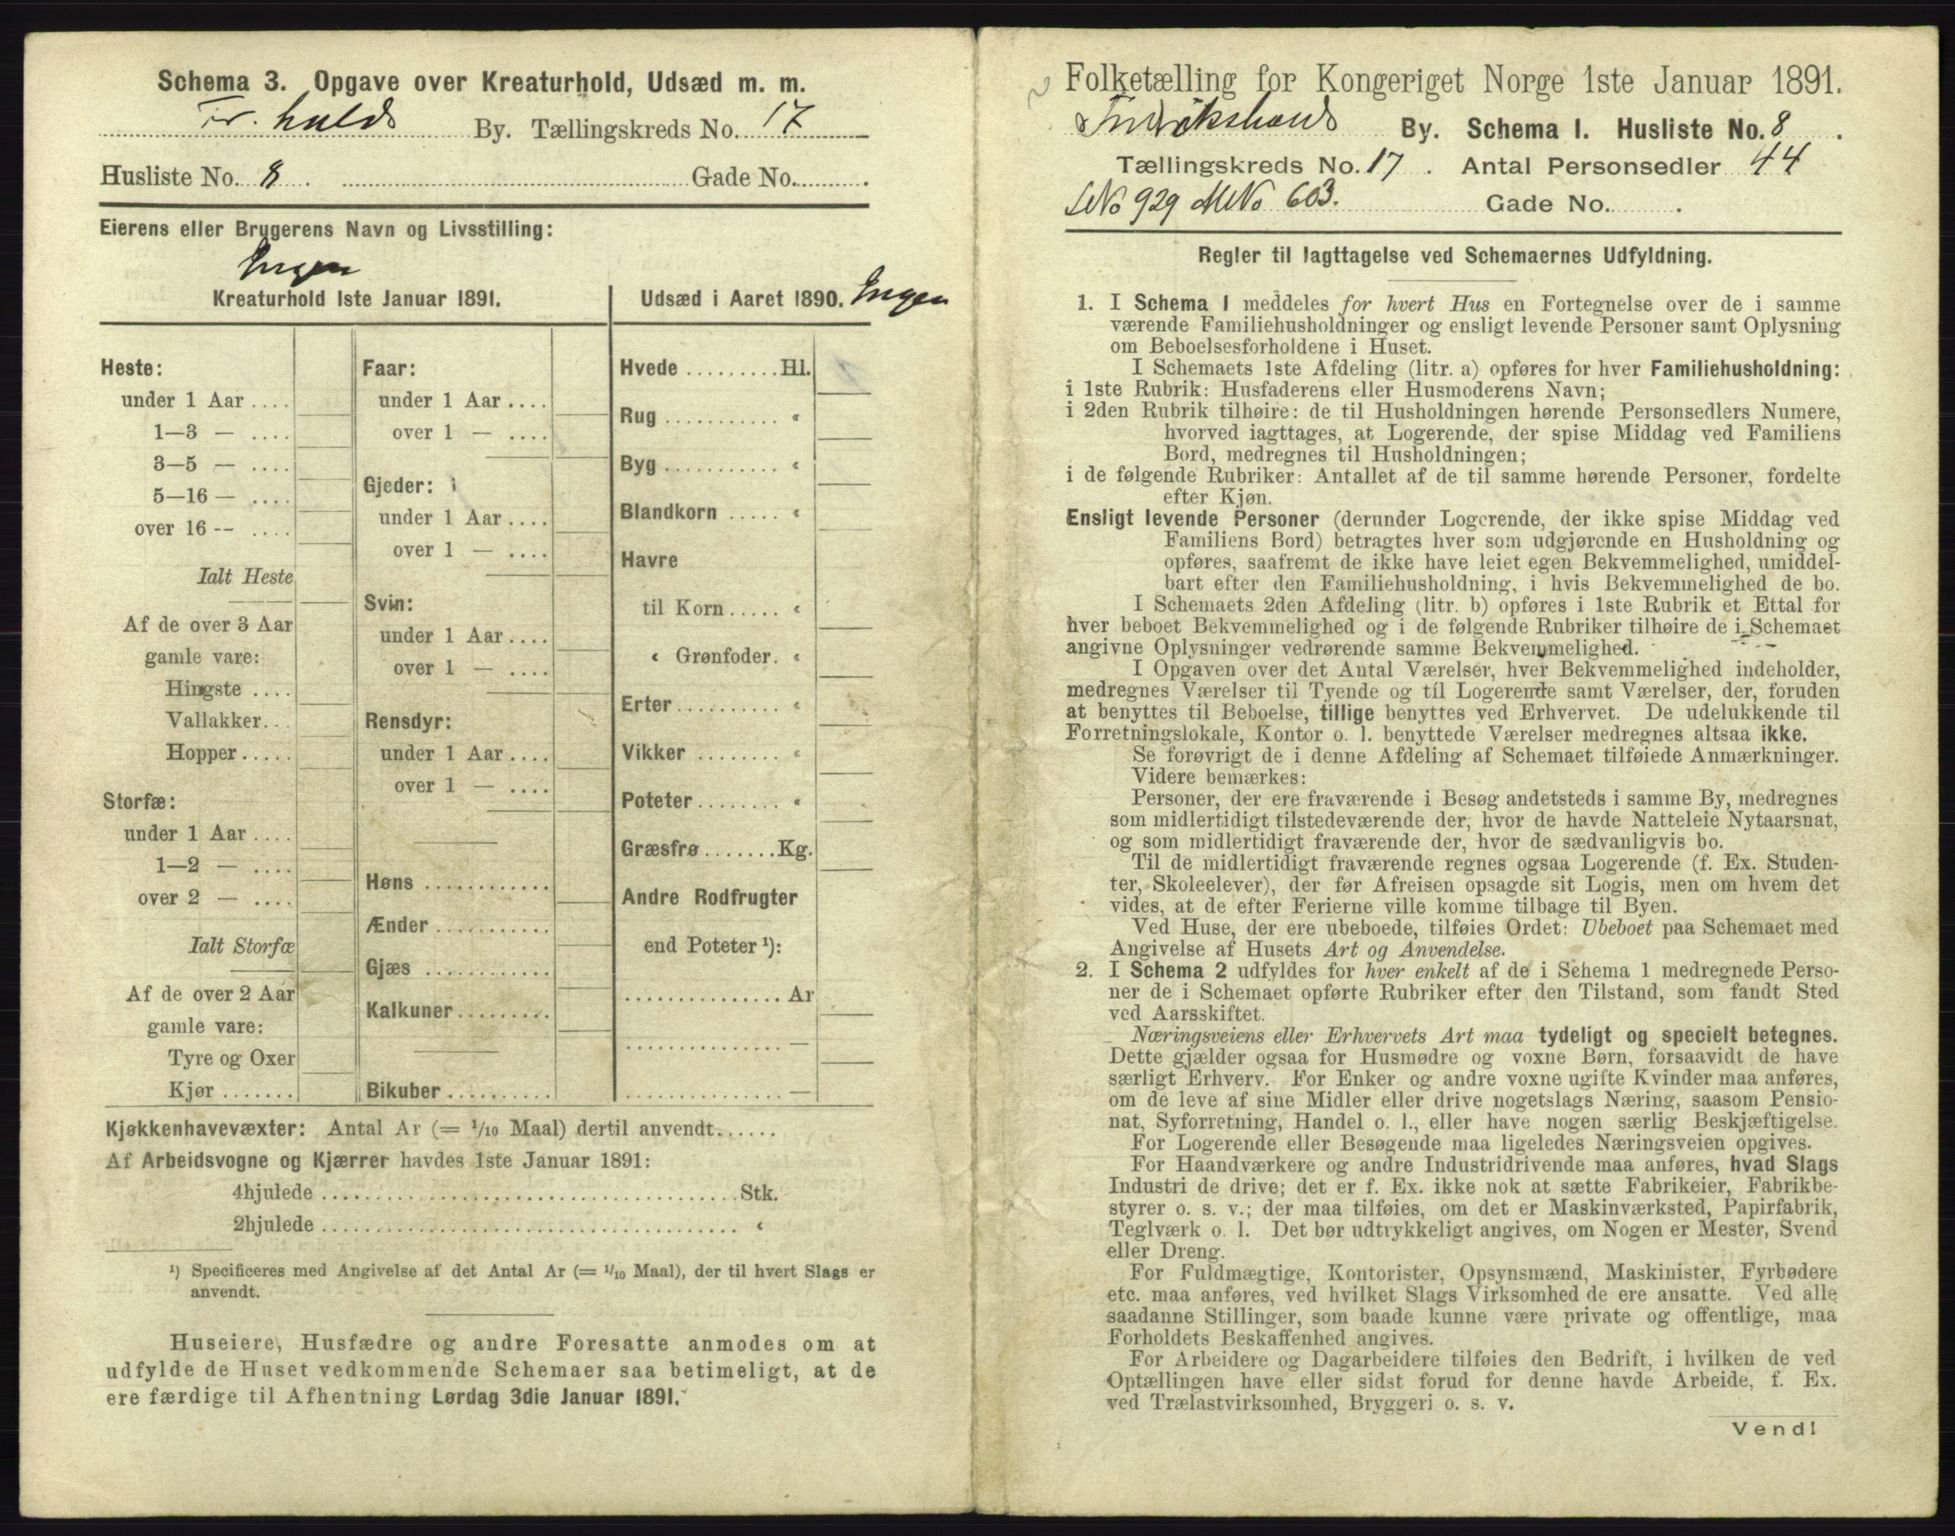 Schema 3. Opgave over Kreaturhold, Udsæd m. m.
Fr.halds By. Tællingskreds No. 17
Husliste No. 8. Gade No.
Eierens eller Brugerens Navn og Livsstilling:
Ingen
Kreaturhold 1ste Januar 1891.
Heste:
under 1 Aar
1—3 —
3—5 —
5—16 —
over 16 --
Ialt Heste
Af de over 3 Aar
gamle vare:
Hingste
Vallakker
Hopper
Storfæ:
under 1 Aar
1—2 —
over 2 —
Ialt Storfæ
Af de over 2 Aar
gamle vare:
Tyre og Oxer
Kjør
Faar:
under 1 Aar
over 1 —
Gjeder:
under 1 Aar
over 1 —
Svin:
under 1 Aar
over 1 —
Rensdyr:
under 1 Aar
over 1 —
Høns
Ænder
Gjæs
Kalkuner
Bikuber
Udsæd i Aaret 1890. Ingen
Hvede Hl.
Rug «
Byg «
Blandkorn «
Havre
til Korn «
« Grønfoder «
Erter «
Vikker «
Poteter «
Græsfrø Kg.
Andre Rodfrugter
end Poteter ¹):
Ar
—
—
Kjøkkenhavevæxter: Antal Ar (= 1/10 Maal) dertil anvendt
Af Arbeidsvogne og Kjærrer havdes 1ste Januar 1891:
4hjulede Stk.
2hjulede «
¹) Specificeres med Angivelse af det Antal Ar (= 1/10 Maal), der til hvert Slags er
anvendt.
Huseiere, Husfædre og andre Foresatte anmodes om at
udfylde de Huset vedkommende Schemaer saa betimeligt, at de
ere færdige til Afhentning Lørdag 3die Januar 1891.
Folketælling for Kongeriget Norge 1ste Januar 1891.
Fredrikshalds By. Schema I. Husliste No. 8.
Tællingskreds No. 17. Antal Personsedler 44
LNo 929 MNo 603. Gade No.
Regler til Iagttagelse ved Schemaernes Udfyldning.
1. I Schema I meddeles for hvert Hus en Fortegnelse over de i samme
værende Familiehusholdninger og ensligt levende Personer samt Oplysning
om Beboelsesforholdene i Huset.
I Schemaets 1ste Afdeling (litr. a) opføres for hver Familiehusholdning:
i 1ste Rubrik: Husfaderens eller Husmoderens Navn;
i 2den Rubrik tilhøire: de til Husholdningen hørende Personsedlers Numere,
hvorved iagttages, at Logerende, der spise Middag ved Familiens
Bord, medregnes til Husholdningen;
i de følgende Rubriker: Antallet af de til samme hørende Personer, fordelte
efter Kjøn.
Ensligt levende Personer (derunder Logerende, der ikke spise Middag ved
Familiens Bord) betragtes hver som udgjørende en Husholdning og
opføres, saafremt de ikke have leiet egen Bekvemmelighed, umiddel-
bart efter den Familiehusholdning, i hvis Bekvemmelighed de bo.
I Schemaets 2den Afdeling (litr. b) opføres i 1ste Rubrik et Ettal for
hver beboet Bekvemmelighed og i de følgende Rubriker tilhøire de i Schemaet
angivne Oplysninger vedrørende samme Bekvemmelighed.
I Opgaven over det Antal Værelser, hver Bekvemmelighed indeholder,
medregnes Værelser til Tyende og til Logerende samt Værelser, der, foruden
at benyttes til Beboelse, tillige benyttes ved Erhvervet. De udelukkende til
Forretningslokale, Kontor o. l. benyttede Værelser medregnes altsaa ikke.
Se forøvrigt de i denne Afdeling af Schemaet tilføiede Anmærkninger.
Videre bemærkes:
Personer, der ere fraværende i Besøg andetsteds i samme By, medregnes
som midlertidigt tilstedeværende der, hvor de havde Natteleie Nytaarsnat,
og som midlertidigt fraværende der, hvor de sædvanligvis bo.
Til de midlertidigt fraværende regnes ogsaa Logerende (f. Ex. Studen-
ter, Skoleelever), der før Afreisen opsagde sit Logis, men om hvem det
vides, at de efter Ferierne ville komme tilbage til Byen.
Ved Huse, der ere ubeboede, tilføies Ordet: Ubeboet paa Schemaet med
Angivelse af Husets Art og Anvendelse.
2. I Schema 2 udfyldes for hver enkelt af de i Schema 1 medregnede Perso-
ner de i Schemaet opførte Rubriker efter den Tilstand, som fandt Sted
ved Aarsskiftet.
Næringsveiens eller Erhvervets Art maa tydeligt og specielt betegnes.
Dette gjælder ogsaa for Husmødre og voxne Børn, forsaavidt de have
særligt Erhverv. For Enker og andre voxne ugifte Kvinder maa anføres,
om de leve af sine Midler eller drive nogetslags Næring, saasom Pensio-
nat, Syforretning, Handel o. l., eller have nogen særlig Beskjæftigelse.
For Logerende eller Besøgende maa ligeledes Næringsveien opgives.
For Haandværkere og andre Industridrivende maa anføres, hvad Slags
Industri de drive; det er f. Ex. ikke nok at sætte Fabrikeier, Fabrikbe-
styrer o. s. v.; der maa tilføies, om det er Maskinværksted, Papirfabrik,
Teglværk o. l. Det bør udtrykkeligt angives, om Nogen er Mester, Svend
eller Dreng.
For Fuldmægtige, Kontorister, Opsynsmænd, Maskinister, Fyrbødere
etc. maa anføres, ved hvilket Slags Virksomhed de ere ansatte. Ved alle
saadanne Stillinger, som baade kunne være private og offentlige, maa
Forholdets Beskaffenhed angives.
For Arbeidere og Dagarbeidere tilføies den Bedrift, i hvilken de ved
Optællingen have eller sidst forud for denne havde Arbeide, f. Ex.
ved Trælastvirksomhed, Bryggeri o. s. v.
Vend!